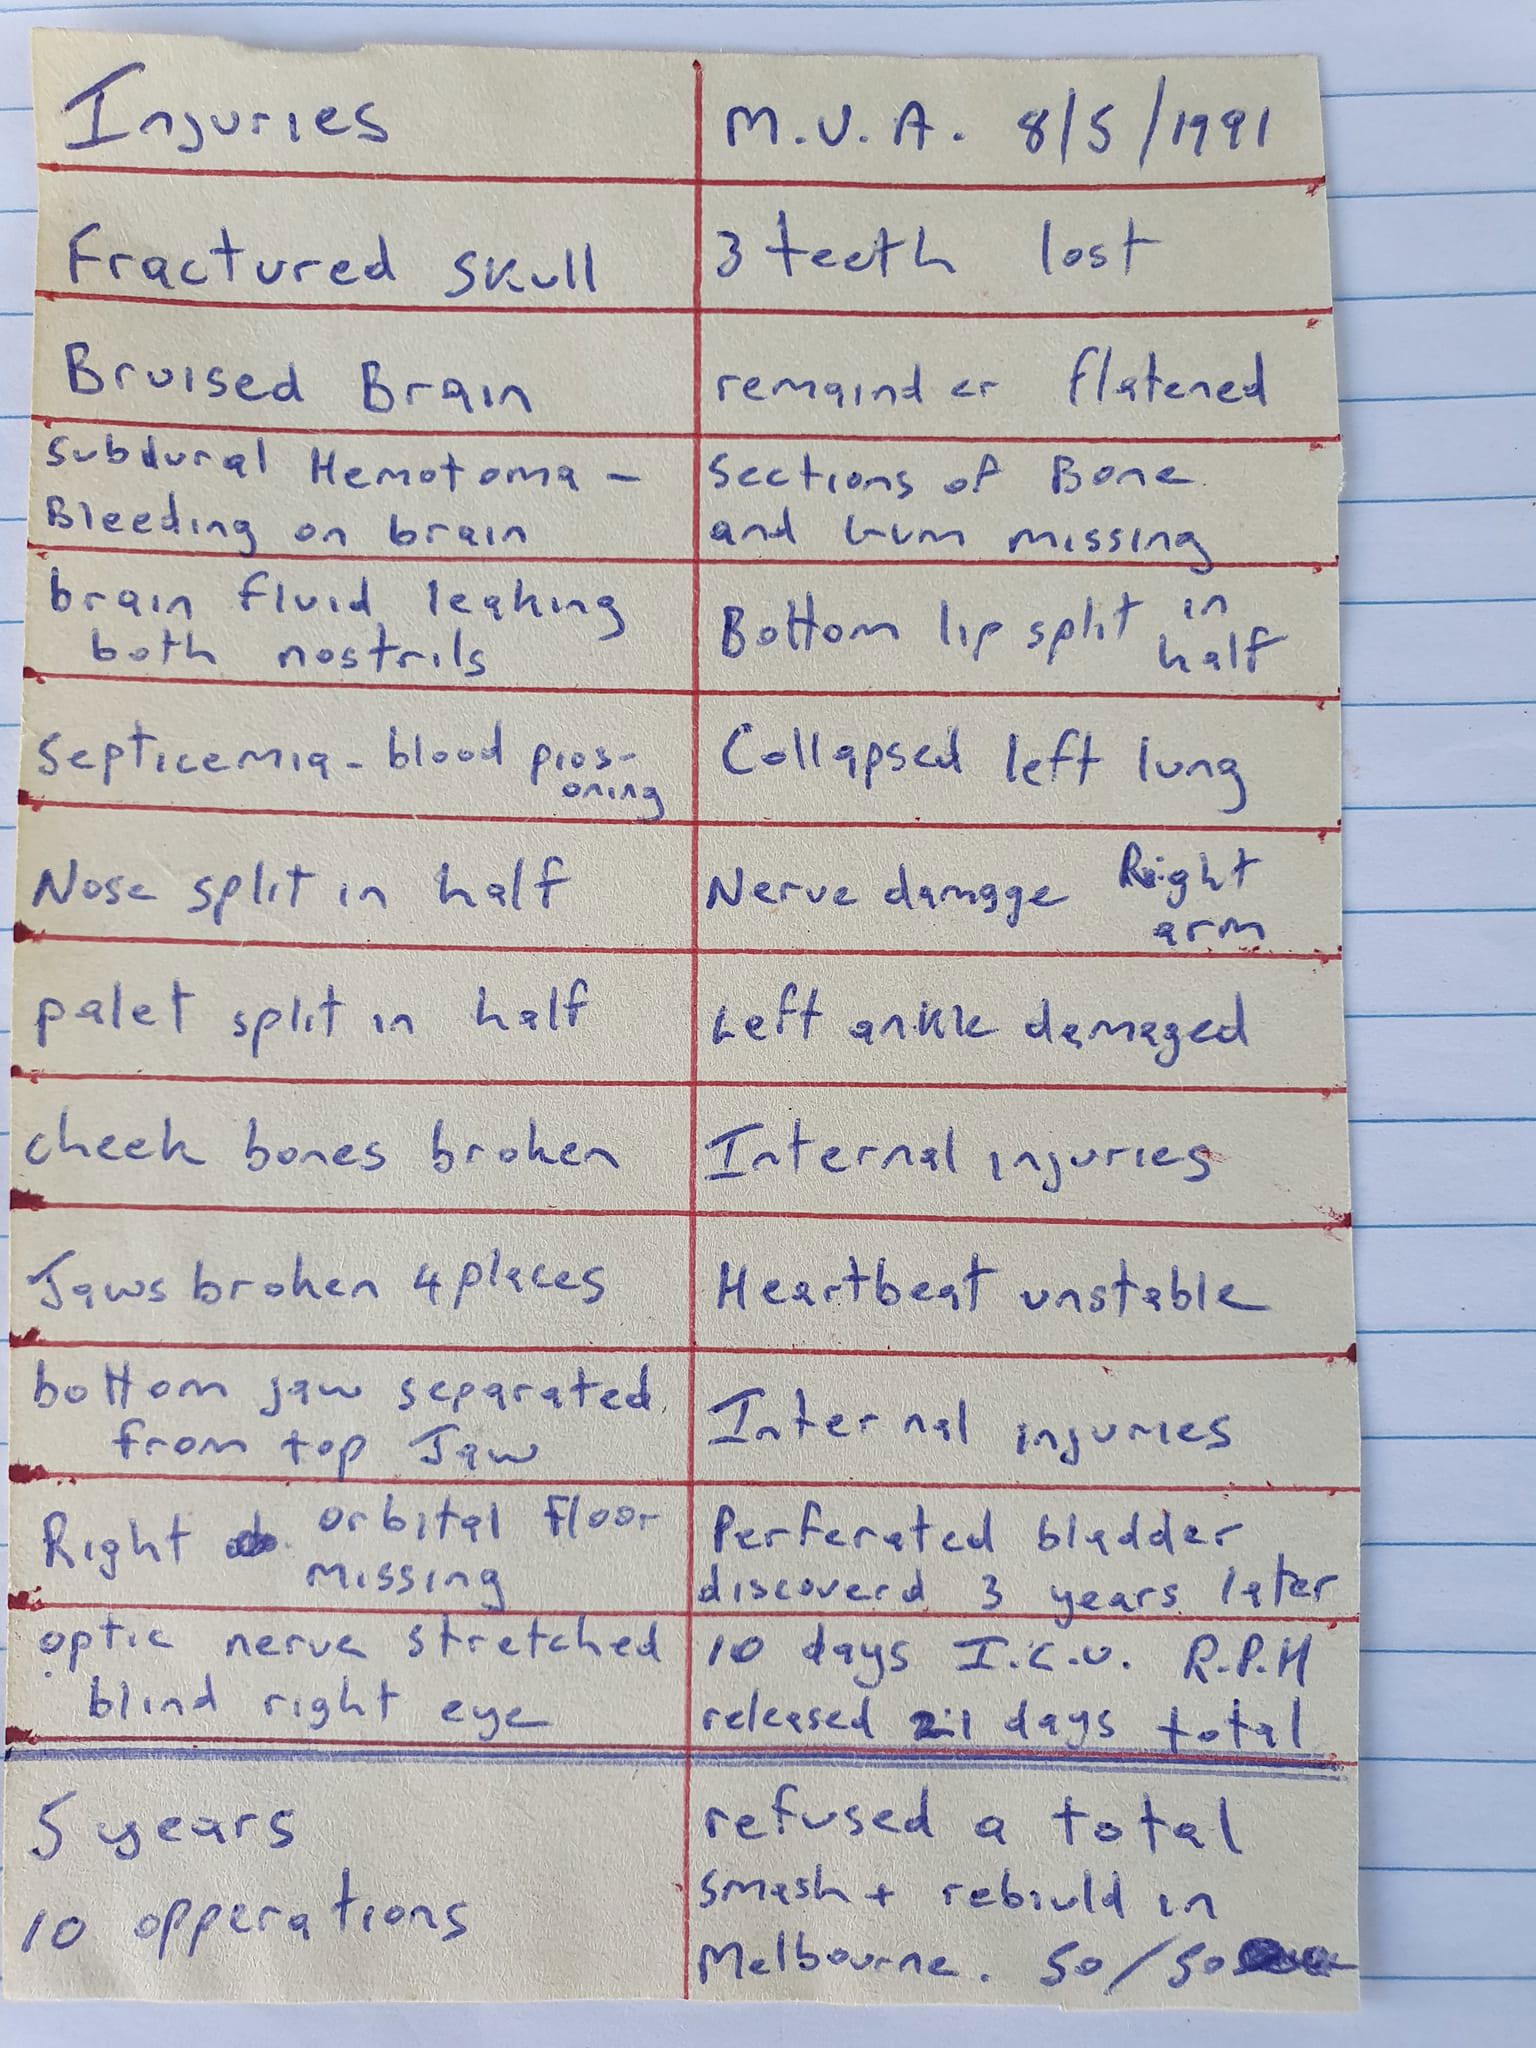 Injuries
M.V.A. 8/5/1991
Fractured Skull
3 teeth lost
Bruised Brain
remainder flatened
Subdural Hemotoma -
Bleeding on brain
Sections of Bone
and Gum missing
brain fluid leaking
both nostrils
Bottom lip split in
half
Septicemia - blood pios-
oning
Collapsed left lung
Nose split in half
Nerve damage Right
arm
palet split in half
Left ankle damaged
cheek bones broken
Internal injuries
Jaws broken 4 places
Heartbeat unstable
bottom jaw separated
from top Jaw
Internal injuries
Right orbital floor
missing
Perferated bladder
discoverd 3 years later
optic nerve stretched
blind right eye
10 days I.C.U. R.P.H
released 21 days total
5 years
10 opperations
refused a total
smash + rebiuld in
Melbourne. 50/50